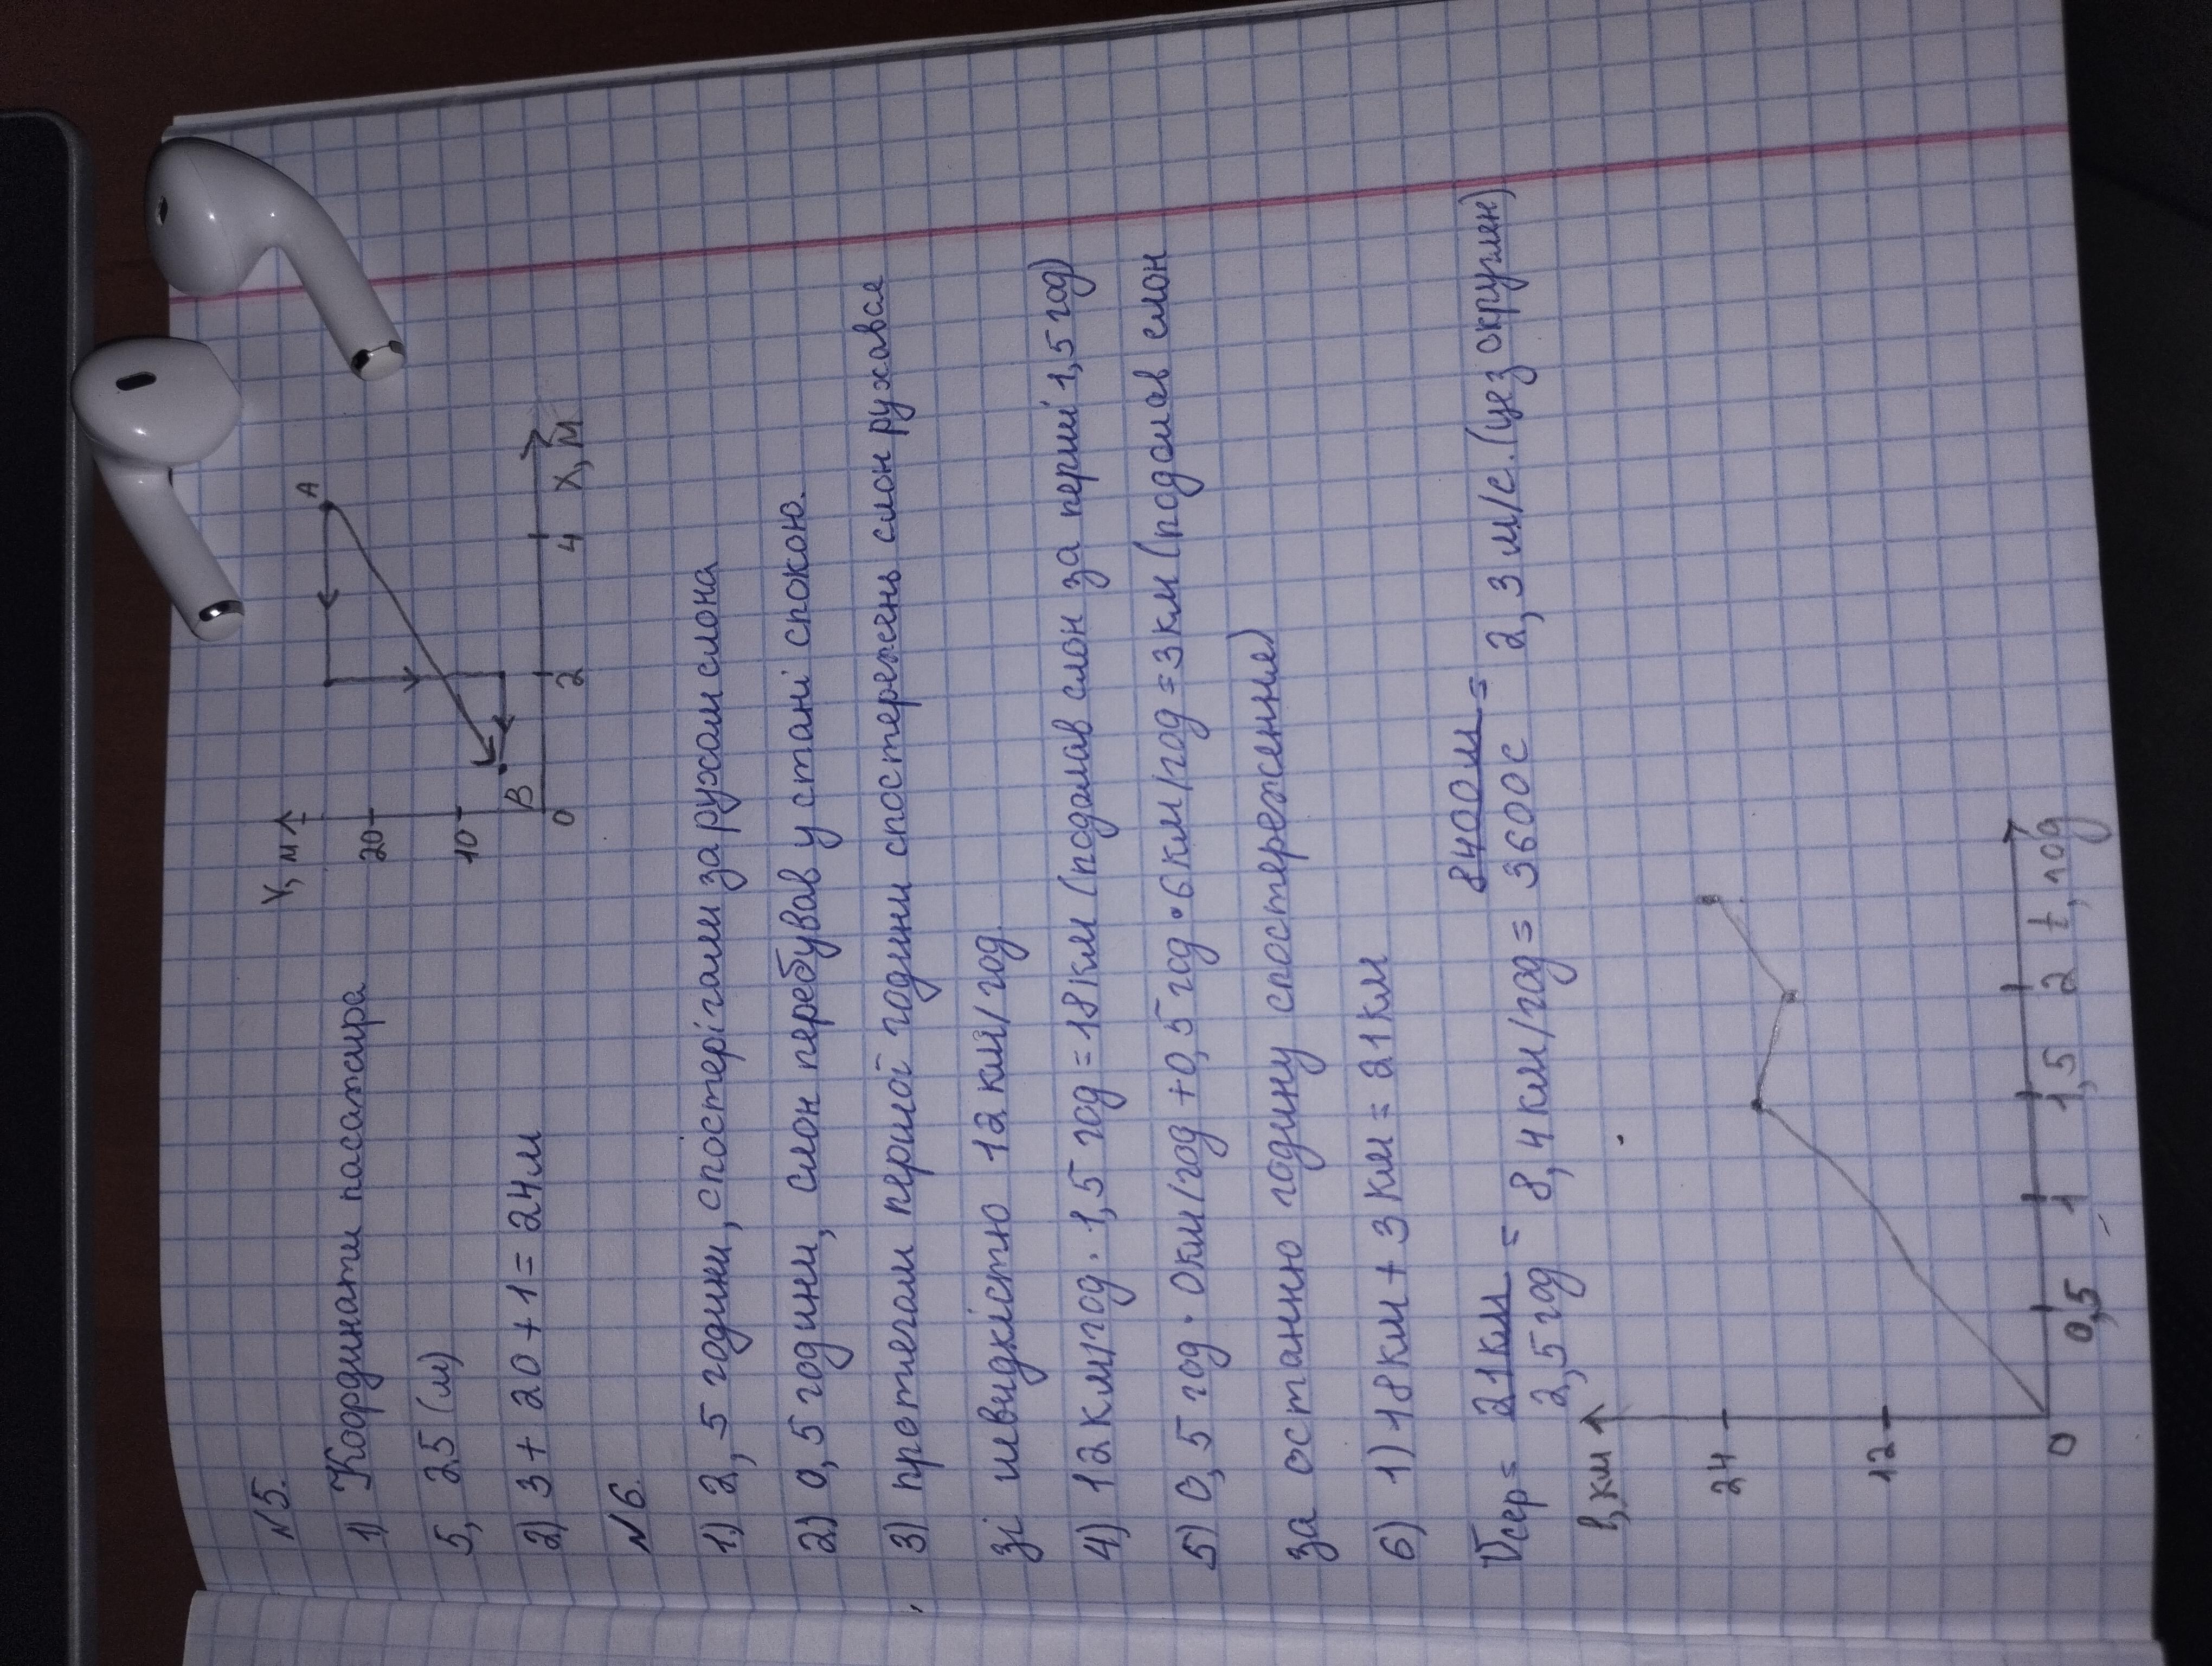 №5.
1) Координати пасажира
5, 25 (м)
2) 3 + 20 + 1 = 24м
Y, м
20
10
A
B
0
2
4
X, м
№6.
1) 2, 5 години, спостерігали за рухом слона
2) 0, 5 години, слон перебував у стані спокою.
3) протегом першої години спостережень слон рухався
зі швидкістю 12 км/год.
4) 12 км/год · 1, 5 год = 18 км (подолав слон за перші 1, 5 год)
5) 0, 5 год · 0км/год + 0, 5 год · 6 км/год = 3 км (подолав слон
за останню годину спостереження)
6) 1) 18 км + 3 км = 21 км
Vсер = 21 км / 2, 5 год = 8, 4 км/год = 8400 м / 3600 с = 2, 3 м/с. (це з округлен)
l, км
24
12
0
0,5
1
1,5
2
t, год